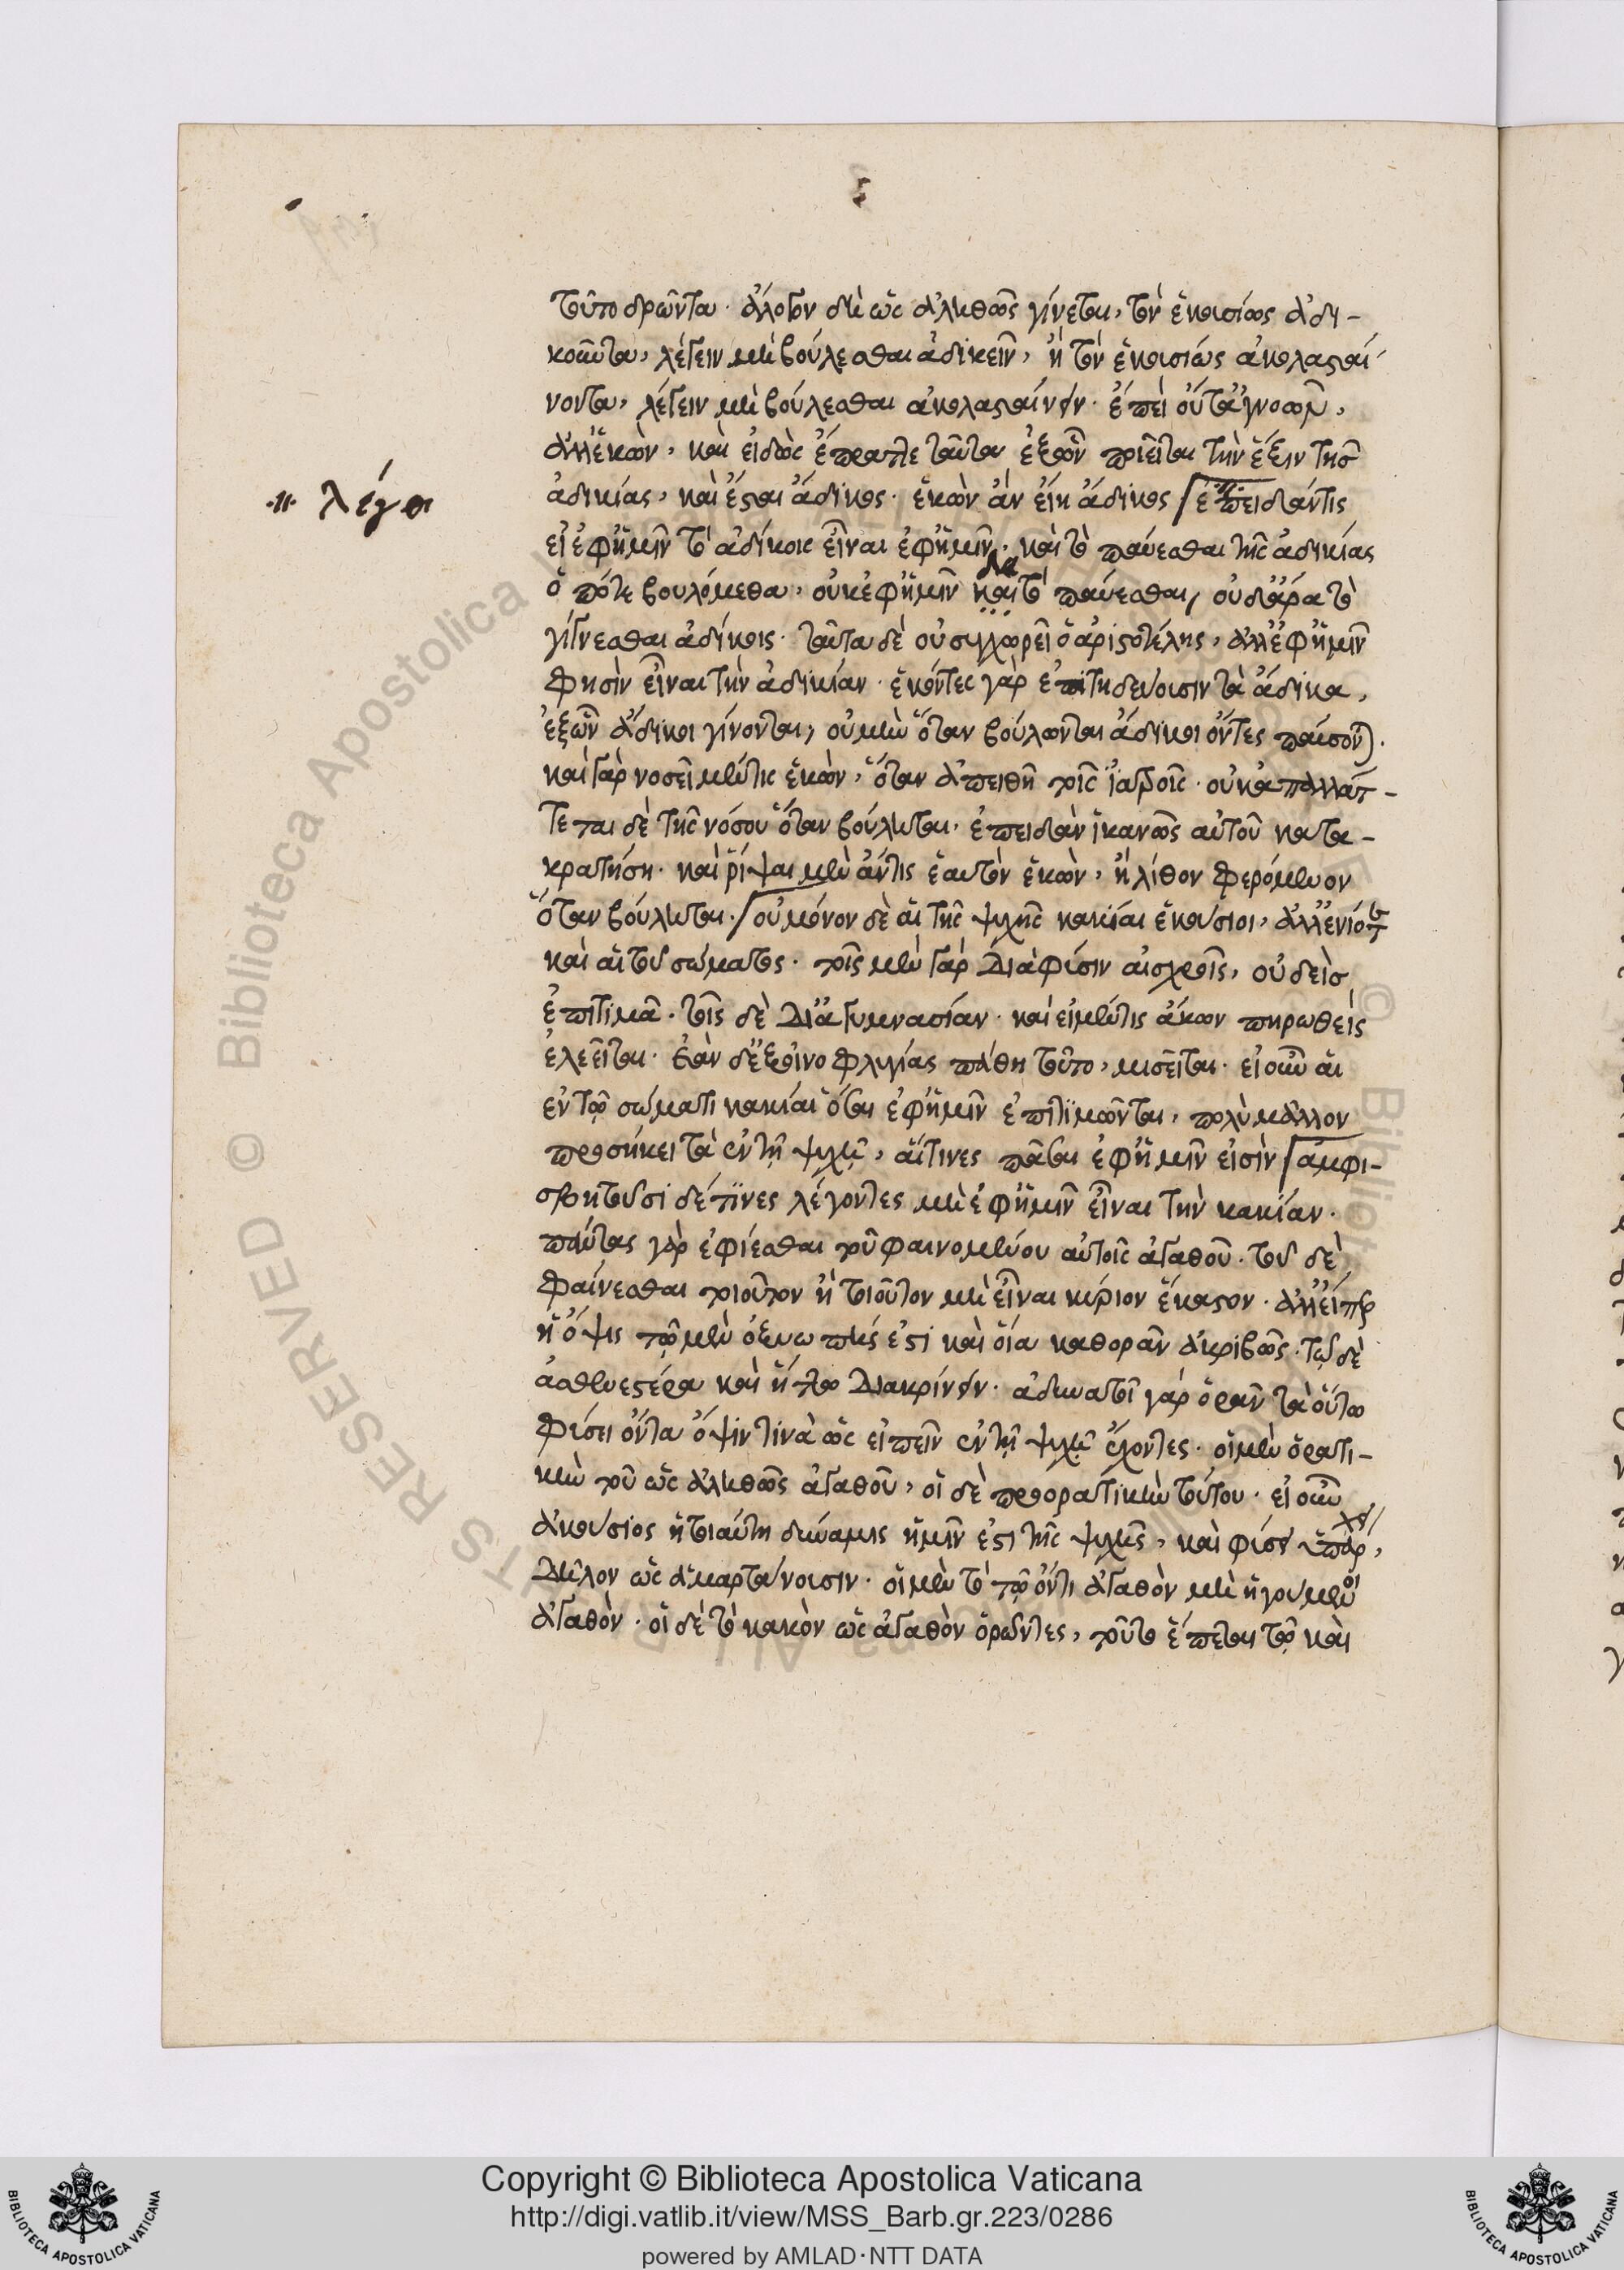 τοῦτο δρῶντα· ἄλογον δὴ ὡς ἀληθῶς γίνεται, τὸν ἑκουσίως ἀδι-
κοῦντα, λέγειν μὴ βούλεσθαι ἀδικεῖν, ἢ τὸν ἑκουσίως ἀκολασταί-
νοντα, λέγειν μὴ βούλεσθαι ἀκολασταίνειν. ἐπεὶ οὔτ' ἀγνοῶν,
ἀλλ' ἑκὼν, καὶ εἰδὼς ἔπραττε ταῦτα ἐξ ὧν ποιεῖται τὴν ἕξιν τῆς
ἀδικίας, καὶ ἔσται ἄδικος. ἑκὼν ἂν εἴη ἄδικος ἐπειδάν τις
·//· λέγοι
εἰ ἐφ' ἡμῖν τὸ ἀδίκοις εἶναι ἐφ' ἡμῖν· καὶ τὸ παύεσθαι τῆς ἀδικίας
ὁπότε βουλόμεθα, οὐκ ἐφ' ἡμῖν καὶ τὸ παύεσθαι, οὐδ' ἄρα τὸ
γίγνεσθαι ἀδίκοις· ταῦτα δὲ οὐ συγχωρεῖ ὁ ἀριστοτέλης, ἀλλ' ἐφ' ἡμῖν
φησὶν εἶναι τὴν ἀδικίαν· ἑκόντες γὰρ ἐπιτηδεύουσιν τὰ ἄδικα,
ἐξ ὧν ἄδικοι γίνονται, οὐ μὴν ὅταν βούλωνται ἄδικοι ὄντες παύσονται.
καὶ γὰρ νοσεῖ μέν τις ἑκὼν, ὅταν ἀπειθῇ τοῖς ἰατροῖς· οὐκ ἀπαλλάτ-
τεται δὲ τῆς νόσου ὅταν βούληται, ἐπειδὰν ἱκανῶς αὐτοῦ κατα-
κρατήσῃ· καὶ ῥίψαι μὲν ἄν τις ἑαυτὸν ἑκὼν, ἢ λίθον φερόμενον
ὅταν βούληται. οὐ μόνον δὲ αἱ τῆς ψυχῆς κακίαι ἑκούσιοι, ἀλλ' ἐνίοτε
καὶ αἱ τοῦ σώματος. τοῖς μὲν γὰρ διὰ φύσιν αἰσχροῖς, οὐδεὶς
ἐπιτιμᾷ. τοῖς δὲ δι' ἀγυμνασίαν· καὶ εἰ μέν τις ἄκων πηρωθεὶς
ἐλεεῖται. ἐὰν δ' ἐξ οἰνοφλυγίας πάθη τοῦτο, μισεῖται. εἰ οὖν αἱ
ἐν τῷ σώματι κακίαι ὅσαι ἐφ' ἡμῖν ἐπιτιμῶνται, πολὺ μᾶλλον
προσήκει τὰ ἐν τῇ ψυχῇ, αἵτινες πᾶσαι ἐφ' ἡμῖν εἰσὶν ἀμφι-
σβητοῦσι δέ τινες λέγοντες μὴ ἐφ' ἡμῖν εἶναι τὴν κακίαν.
πάντας γὰρ ἐφίεσθαι τοῦ φαινομένου αὐτοῖς ἀγαθοῦ. τοῦ δὲ
φαίνεσθαι τοιοῦτον ἢ τοιοῦτον μὴ εἶναι κύριον ἕκαστον. ἀλλ' εἴπερ
ἡ ὄψις τῷ μὲν ὀξυωπής ἐστι καὶ οἵα καθορᾶν ἀκριβῶς. τῷ δὲ
ἀσθενεστέρα καὶ ἥττω διακρίνειν. ἀδυνατεῖ γὰρ ὁρᾶν τὰ οὕτω
φύσει ὄντα ὄψιν τινὰ ὡς εἰπεῖν ἐν τῇ ψυχῇ ἔχοντες. οἱ μὲν ὁρατι-
κὴν τοῦ ὡς ἀληθῶς ἀγαθοῦ, οἱ δὲ προορατικὴν τούτου. εἰ οὖν
ἀκούσιος ἡ τοιαύτη δύναμις ἡμῖν ἐστι τῆς ψυχῆς, καὶ φύσει ὑπάρχει,
δῆλον ὡς ἁμαρτάνουσιν. οἱ μὲν τὸ τῷ ὄντι ἀγαθὸν μὴ ἡγούμενοι
ἀγαθὸν. οἱ δὲ τὸ κακὸν ὡς ἀγαθὸν ὁρῶντες, τοῦτο ἕπεται τῷ καὶ
Copyright © Biblioteca Apostolica Vaticana
http://digi.vatlib.it/view/MSS_Barb.gr.223/0286
powered by AMLAD·NTT DATA